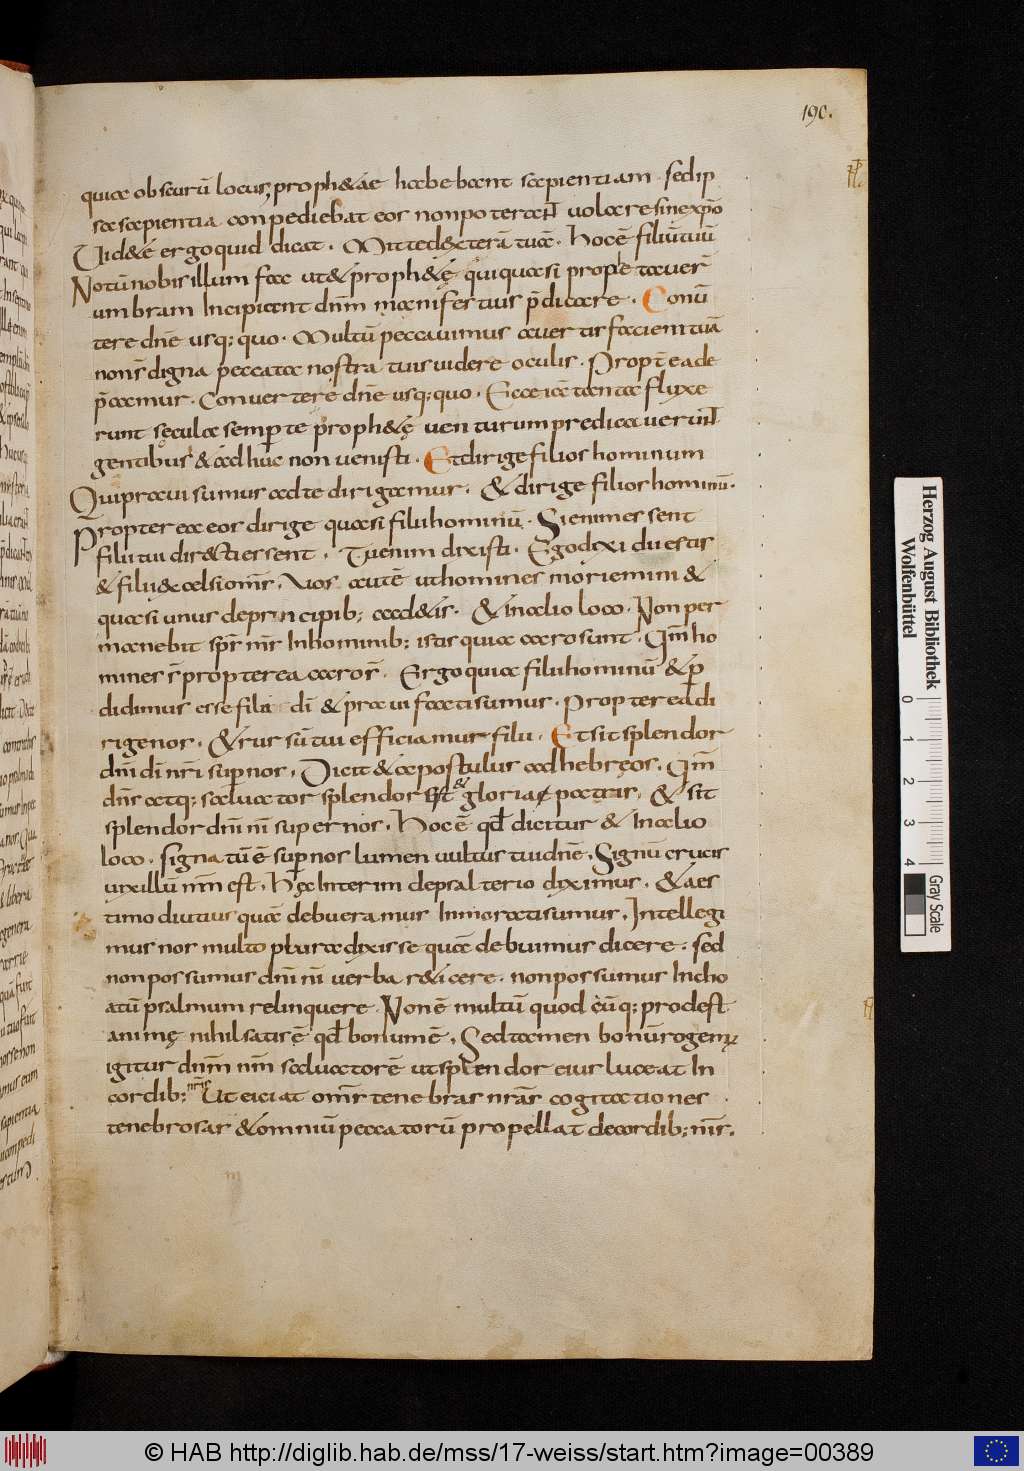 190.
quia obscurū locus, proph&ae habebant sapientiam. sed ip
sa sapientia conpediebat eos non poterant uolare sine xp̄o
Uid&e ergo quid dicat. Mitte dexterā tuā. hoc ē filiū tuū
Notū nobis illum fac ut & proph&ę qui quasi prope tauer̄
umbram Incipient dn̄m manifestius p̄dicare. Conū
tere dn̄e usq; quo. Multū peccauimus auertis faciem tuā
non s̄ digna peccata nostra tuis uidere oculis. Propt̄ea de
p̄camur. Conuertere dn̄e usq; quo. Ecce iā tanta fluxe
runt sęcula semp te proph&ę uenturum predicauerunt
gentibus & adhuc non uenisti. Et dirige filios hominum
Qui praui sumus ad te dirigamur. & dirige filios hominū.
Propter ea eos dirige quasi filii hominū. Si enim essent
filii tui directi essent. Tu enim dixisti. Ego dixi dii estis
& filii excelsi om̄s. Uos autē ut homines moriemini &
quasi unus de principib; cad&is. & in alio loco. Non per
manebit sp̄s m̄s In hominib; istis quia caro sunt. Qm̄ ho
mines s̄ propterea caro s̄. Ergo quia filii hominū & p̄
didimus esse filii dī & praui facti sumus. Propterea di
rige nos. & rursū tui efficiamur filii. Et sit splendor
dn̄i dī nr̄i sup nos. Dicit & apostulus ad hebręos. Qm̄
dn̄s atq; saluator splendor est & gloria patris, & sit
splendor dn̄i nī super nos. Hoc ē qd̄ dicitur & In alio
loco. signatū ē sup nos lumen uultus tui dn̄e. Signū crucis
uixillū nm̄ est. Hęc Interim de psalterio diximus. & aes
timo diutius quā debueramus Inmorati sumus. Intellegi
mus nos multo plura dixisse quā debuimus dicere. sed
non possumus dn̄i nī uerba r&icere. non possumus Incho
atū psalmum relinquere. Non ē multū quod cūq; prodest
animę nihil satis ē qd̄ bonum ē. Sed tamen bonū rogemus
igitur dn̄m nm̄ saluatorē ut splendor eius luceat In
cordib; nr̄is Ut eiciat om̄s tenebras nr̄as cogitationes
tenebrosas & omniū peccatorū propellat de cordib; nr̄is.
Herzog August Bibliothek
Wolfenbüttel
0 1 2 3 4
Gray Scale
© HAB http://diglib.hab.de/mss/17-weiss/start.htm?image=00389